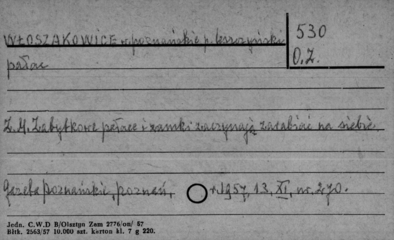 WŁOSZAKOWICE, w. poznańskie p. leszczyński
530
pałac
O.Z.
Z.M. Zabytkowe pałace i zamki zaczynają zarabiać na siebie.
Gazeta Poznańska, Poznań, r. 1957, 13. XI, nr. 270.
Jedn. C.W.D B/Olsztyn Zam 2776/on/ 57
Błtk. 2563/57 10.000 szt. karton kl. 7 g 220.